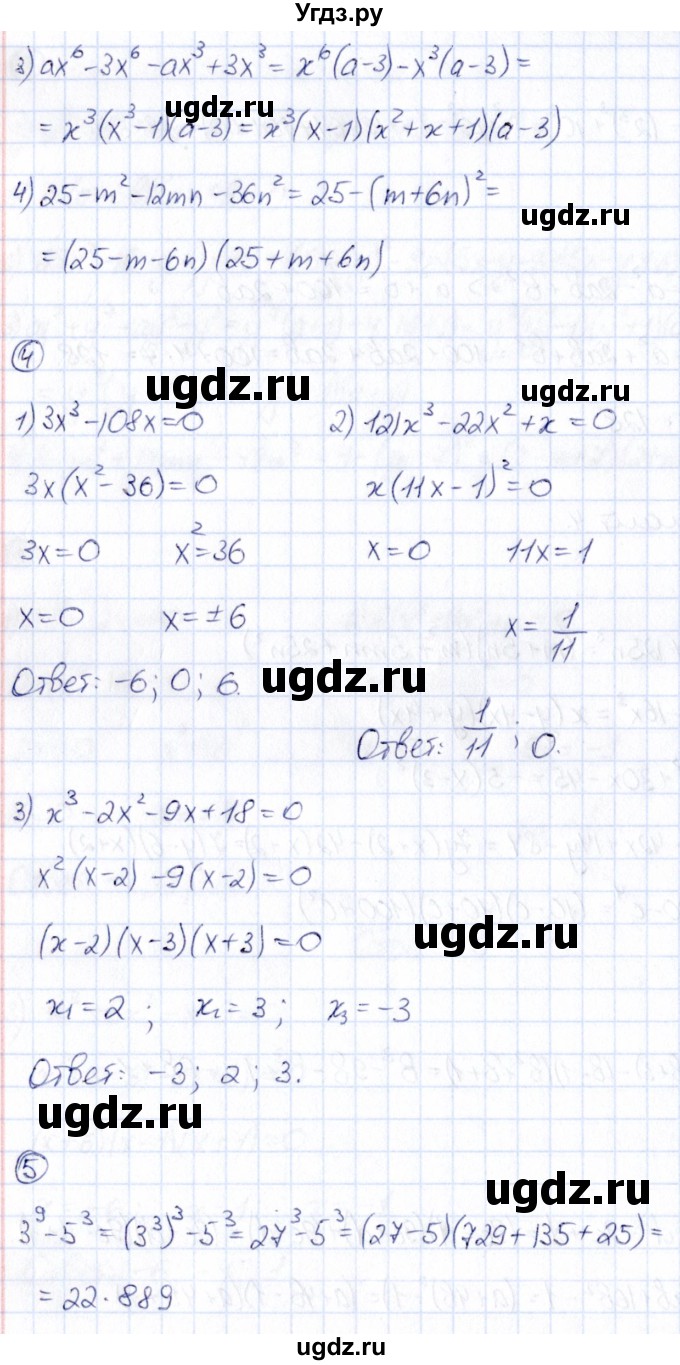 Угдз.ру
3) ax⁶-3x⁶-ax³+3x³= x⁶(a-3)-x³(a-3)=
= x³(x³-1)(a-3)= x³(x-1)(x²+x+1)(a-3)
ugdz.ru
4) 25-m²-12mn-36n²= 25-(m+6n)²=
ugdz.ru
=(25-m-6n)(25+m+6n)
4
ugdz.ru
ugdz.ru
1) 3x³-108x=0
2) 121x³-22x²+x=0
3x(x²-36)=0
x(11x-1)²=0
3x=0 x²=36
x=0 11x=1
x=0 x=±6
x= 1/11
Ответ: -6; 0; 6.
ugdz.ru
Ответ: 1/11; 0.
3) x³-2x²-9x+18=0
x²(x-2)-9(x-2)=0
(x-2)(x-3)(x+3)=0
ugdz.ru
x₁=2; x₂=3; x₃=-3
Ответ: -3; 2; 3.
ugdz.ru
5
ugdz.ru
3⁹-5³=(3³)³-5³=27³-5³=(27-5)(729+135+25)=
=22·889
ugdz.ru